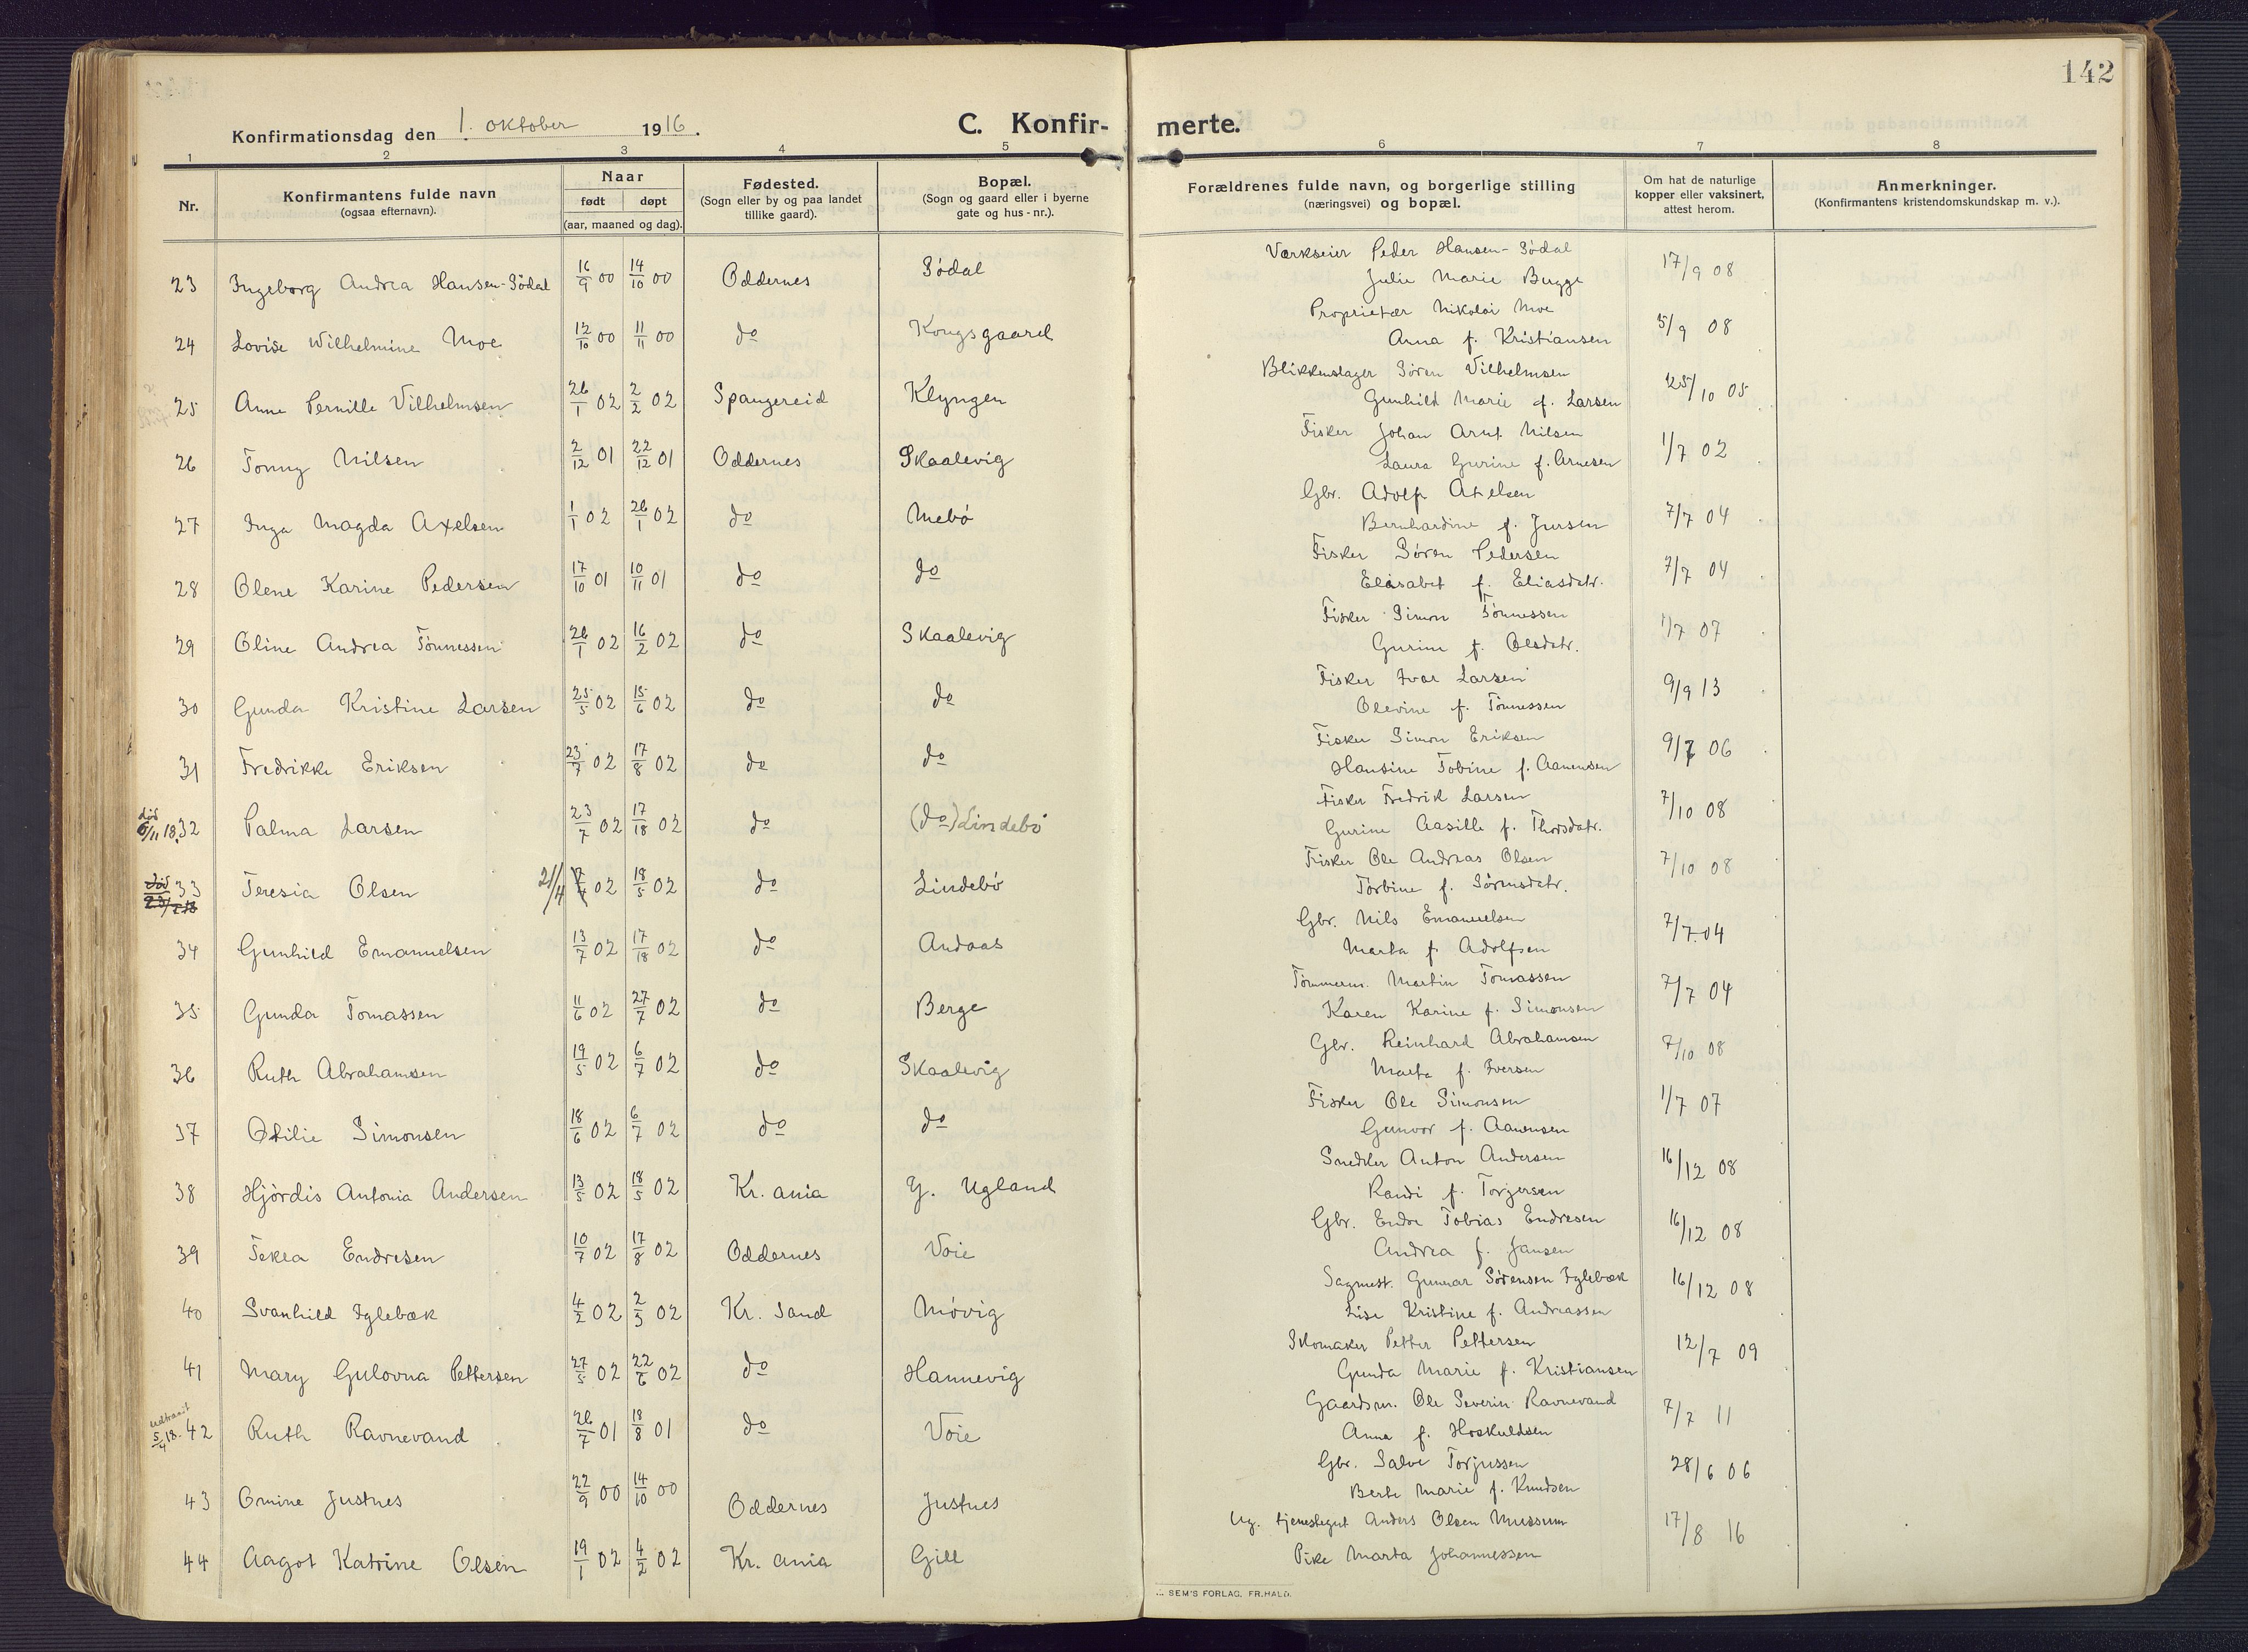 142
Konfirmationsdag den 1. oktober 1916.
C. Konfir- merte.
1 2 3 4 5 6 7 8
Nr.
Konfirmantens fulde navn
(ogsaa efternavn).
Naar
født døpt
(aar, maaned og dag).
Fødested.
(Sogn eller by og paa landet
tillike gaard).
Bopæl.
(Sogn og gaard eller i byerne
gate og hus-nr.).
Forældrenes fulde navn, og borgerlige stilling
(næringsvei) og bopæl.
Om hat de naturlige
kopper eller vaksinert,
attest herom.
Anmerkninger.
(Konfirmantens kristendomskundskap m. v.).
Værkseier Peder Hansen-Sødal
23 Ingeborg Andrea Hansen-Sødal 16/9 00 14/10 00 Oddernes Sødal Julie Marie Bugge 17/9 08
Proprietær Nikolai Moe
24 Lovise Wilhelmine Moe 12/10 00 11/11 00 do Kongsgaard Anna f. Kristiansen 5/9 08
Blikkenslager Søren Vilhelmsen
25 Anne Pernille Vilhelmsen 26/1 02 2/2 02 Spangereid Klyngen Gunhild Marie f. Larsen 25/10 05
Fisker Johan Arnt Nilsen
26 Tonny Nilsen 2/12 01 22/12 01 Oddernes Skaalevig Laura Gurine f. Arnesen 1/7 02
Gbr. Adolf Axelsen
27 Inga Magda Axelsen 1/1 02 26/1 02 do Mebø Bernhardine f. Jursen 7/7 04
Fisker Søren Pedersen
28 Olene Karine Pedersen 17/10 01 10/11 01 do do Elisabet f. Eliasdatr. 7/7 04
Fisker Simon Tønnessen
29 Oline Andrea Tønnessen 26/1 02 16/2 02 do Skaalevig Gurine f. Olsdatr. 1/7 07
Fisker Ivar Larsen
30 Gunda Kristine Larsen 25/5 02 15/6 02 do do Olevine f. Tønnessen 9/9 13
Fisker Simon Eriksen
31 Fredrikke Eriksen 23/7 02 17/8 02 do do Hansine Tobine f. Aanensen 9/7 06
Fisker Fredrik Larsen
død 6/11 18. 32 Palma Larsen 23/7 02 17/18 02 do (do) Lindebø Gurine Aasille f. Thorsdatr. 7/10 08
Fisker Ole Andreas Olsen
død 33 Teresia Olsen 21/4 02 18/5 02 do Lindebø Torbine f. Sørensdatr. 7/10 08
Gbr. Nils Emanuelsen
34 Gunhild Emanuelsen 13/7 02 17/18 02 do Andaas Marta f. Adolfsen 7/7 04
Tømmerm. Martin Tomassen
35 Gunda Tomassen 11/6 02 27/7 02 do Berge Karen Karine f. Simonsen 7/7 04
Gbr. Reinhard Abrahamsen
36 Ruth Abrahamsen 19/5 02 6/7 02 do Skaalevig Marta f. Iversen 7/10 08
Fisker Ole Simonsen
37 Otilie Simonsen 18/6 02 6/7 02 do do Gunvor f. Aanensen 1/7 07
Snedker Anton Andersen
38 Hjördis Antonia Andersen 13/5 02 18/5 02 Kr. ania Y. Ugland Randi f. Torgersen 16/12 08
Gbr. Endre Tobias Endresen
39 Tekla Endresen 10/7 02 17/8 02 Oddernes Voie Andrea f. Jansen 16/12 08
Sagmest. Gunnar Sørensen Iglebæk
40 Svanhild Iglebæk 4/2 02 2/3 02 Kr. sand Møvig Lise Kristine f. Andreassen 16/12 08
Skomaker Petter Pettersen
41 Mary Gulovna Pettersen 27/5 02 22/6 02 do Hannevig Gunda Marie f. Kristiansen 12/7 09
Gaardsm. Ole Severin Ravnevand
udtraadt 5/4 18. 42 Ruth Ravnevand 26/7 01 18/8 01 do Voie Anna f. Hoskuldsen 7/7 11
Gbr. Salve Torjussen
43 Omine Justnes 22/9 00 14/10 00 Oddernes Justnes Berte Marie f. Knudsen 28/6 06
Ug. tjenestegut Anders Olsen Mussum
44 Aagot Katrine Olsen 19/1 02 4/2 02 Kr. ania Gill Pike Marta Johannessen 17/8 16
SEM'S FORLAG. FR.HALD.